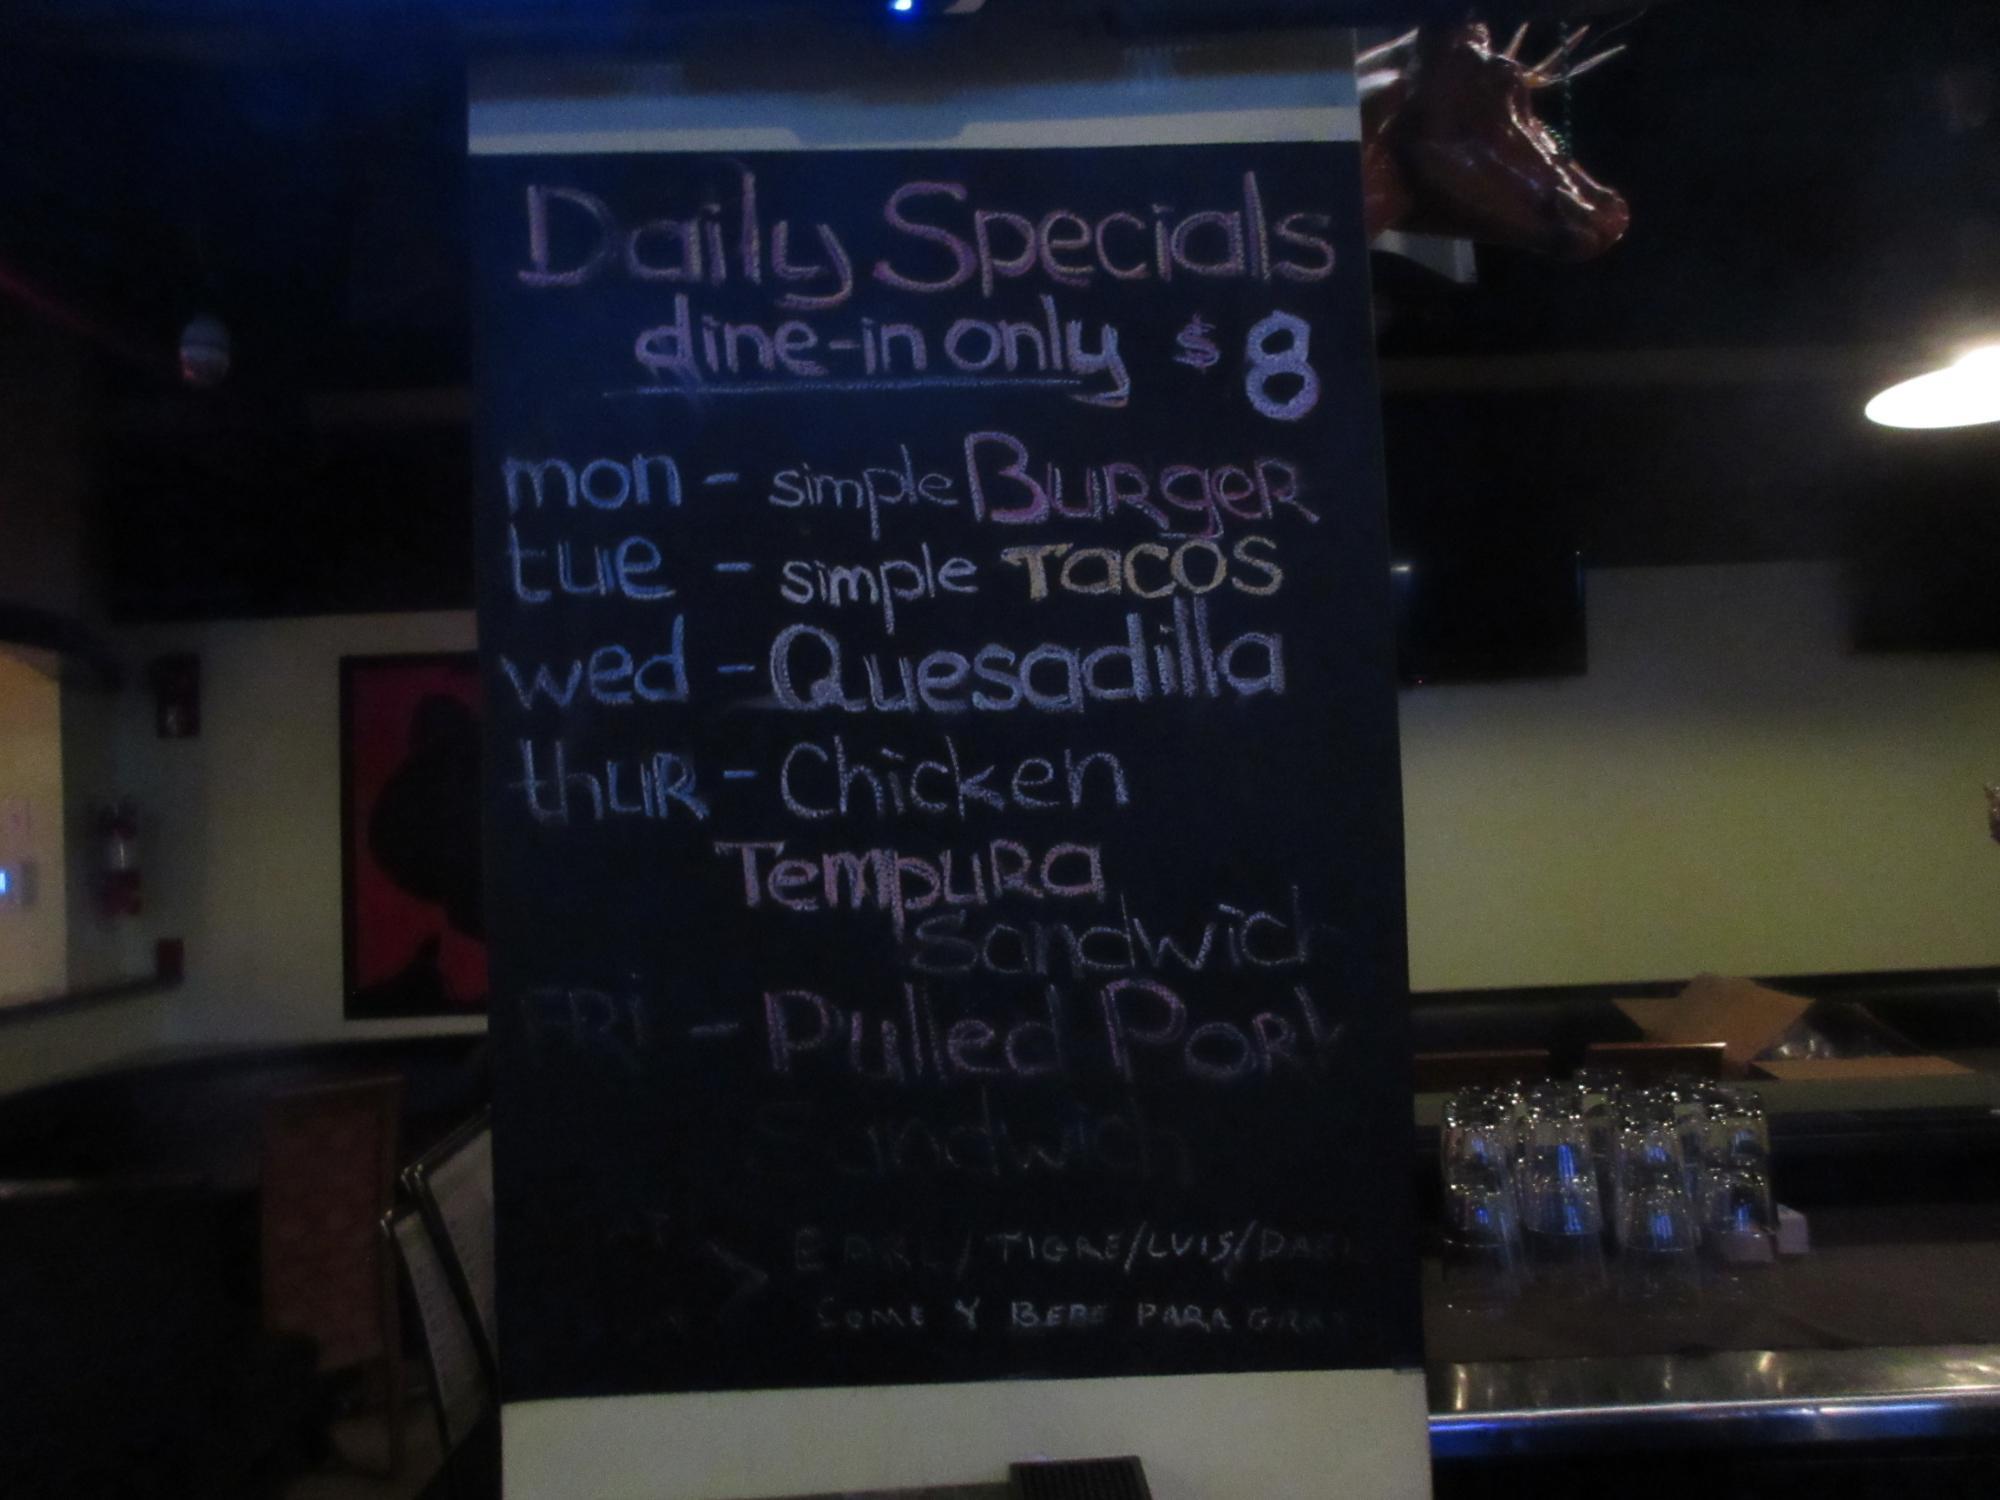 Daily Specials
dine-in only $8
mon - simple BURgeR
tue - simple TacOS
wed - Quesadilla
thuR - Chicken
TempuRa
Sandwich
FRi - Pulled PORk
Sandwich
EARL/TIGRE/LUIS/
COME Y BEBE PARA